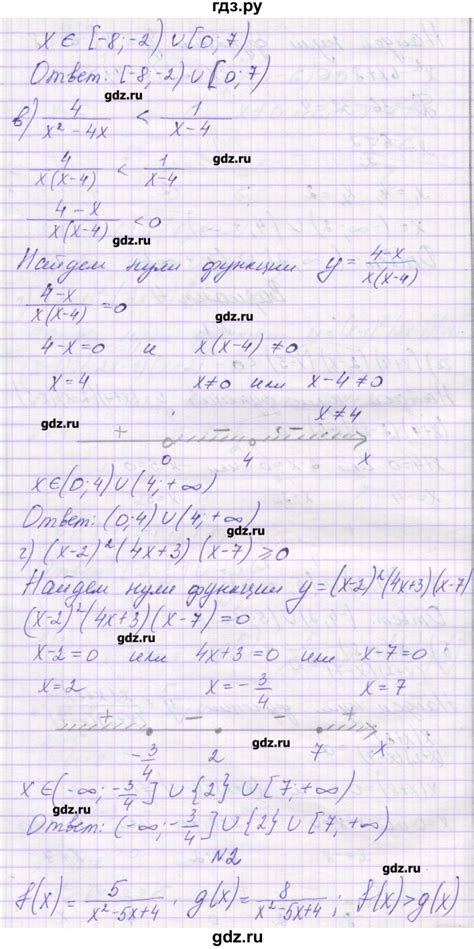 гдз.ру
x ∈ [-8; -2) ∪ [0; 7)
Ответ: [-8; -2) ∪ [0; 7)
gdz.ru
в) 4/(x² - 4x) < 1/(x-4)
gdz.ru
4/(x(x-4)) < 1/(x-4)
gdz.ru
(4-x)/(x(x-4)) < 0
gdz.ru
Найдем нули функции y = (4-x)/(x(x-4))
gdz.ru
(4-x)/(x(x-4)) = 0
gdz.ru
4-x=0 и x(x-4) ≠ 0
gdz.ru
x=4 x≠0 или x-4≠0
gdz.ru x≠4
+ − −
0 4 x
x ∈ (0; 4) ∪ (4; +∞)
gdz.ru
Ответ: (0; 4) ∪ (4; +∞)
gdz.ru
г) (x-2)²(4x+3)(x-7) ≥ 0
gdz.ru
Найдем нули функции y=(x-2)²(4x+3)(x-7)
(x-2)²(4x+3)(x-7)=0
gdz.ru
x-2=0 или 4x+3=0 или x-7=0
gdz.ru
x=2 x=-3/4 x=7
gdz.ru
+ − − +
-3/4 2 7 x
gdz.ru
x ∈ (-∞; -3/4] ∪ {2} ∪ [7; +∞)
gdz.ru
Ответ: (-∞; -3/4] ∪ {2} ∪ [7; +∞)
gdz.ru
№2
f(x) = 5/(x²-5x+4); g(x) = 8/(x²-5x+4); f(x)>g(x)
gdz.ru